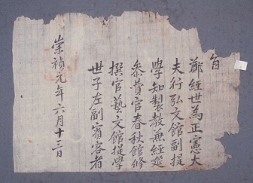 旨
鄭經世爲正憲大
夫行弘文館副提
學知製敎兼經筵
叅贊官春秋館修
撰官藝文館提學
世子左副賓客者
崇禎元年六月十三日